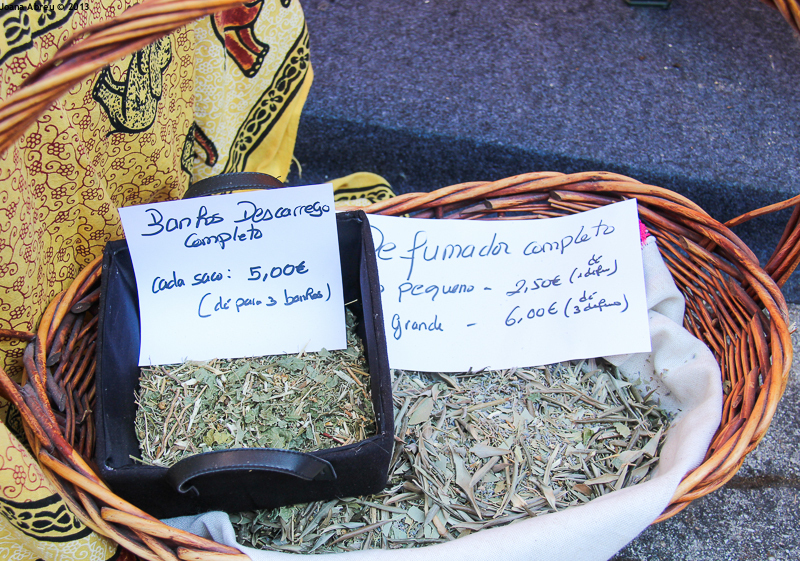 Joana Abreu © 2013
Banhos Descarrego
completo
cada saco: 5,00€
(dá para 3 banhos)
Defumador completo
pequeno - 2,50€ (dá 1 defum)
Grande - 6,00€ (dá 3 defum)